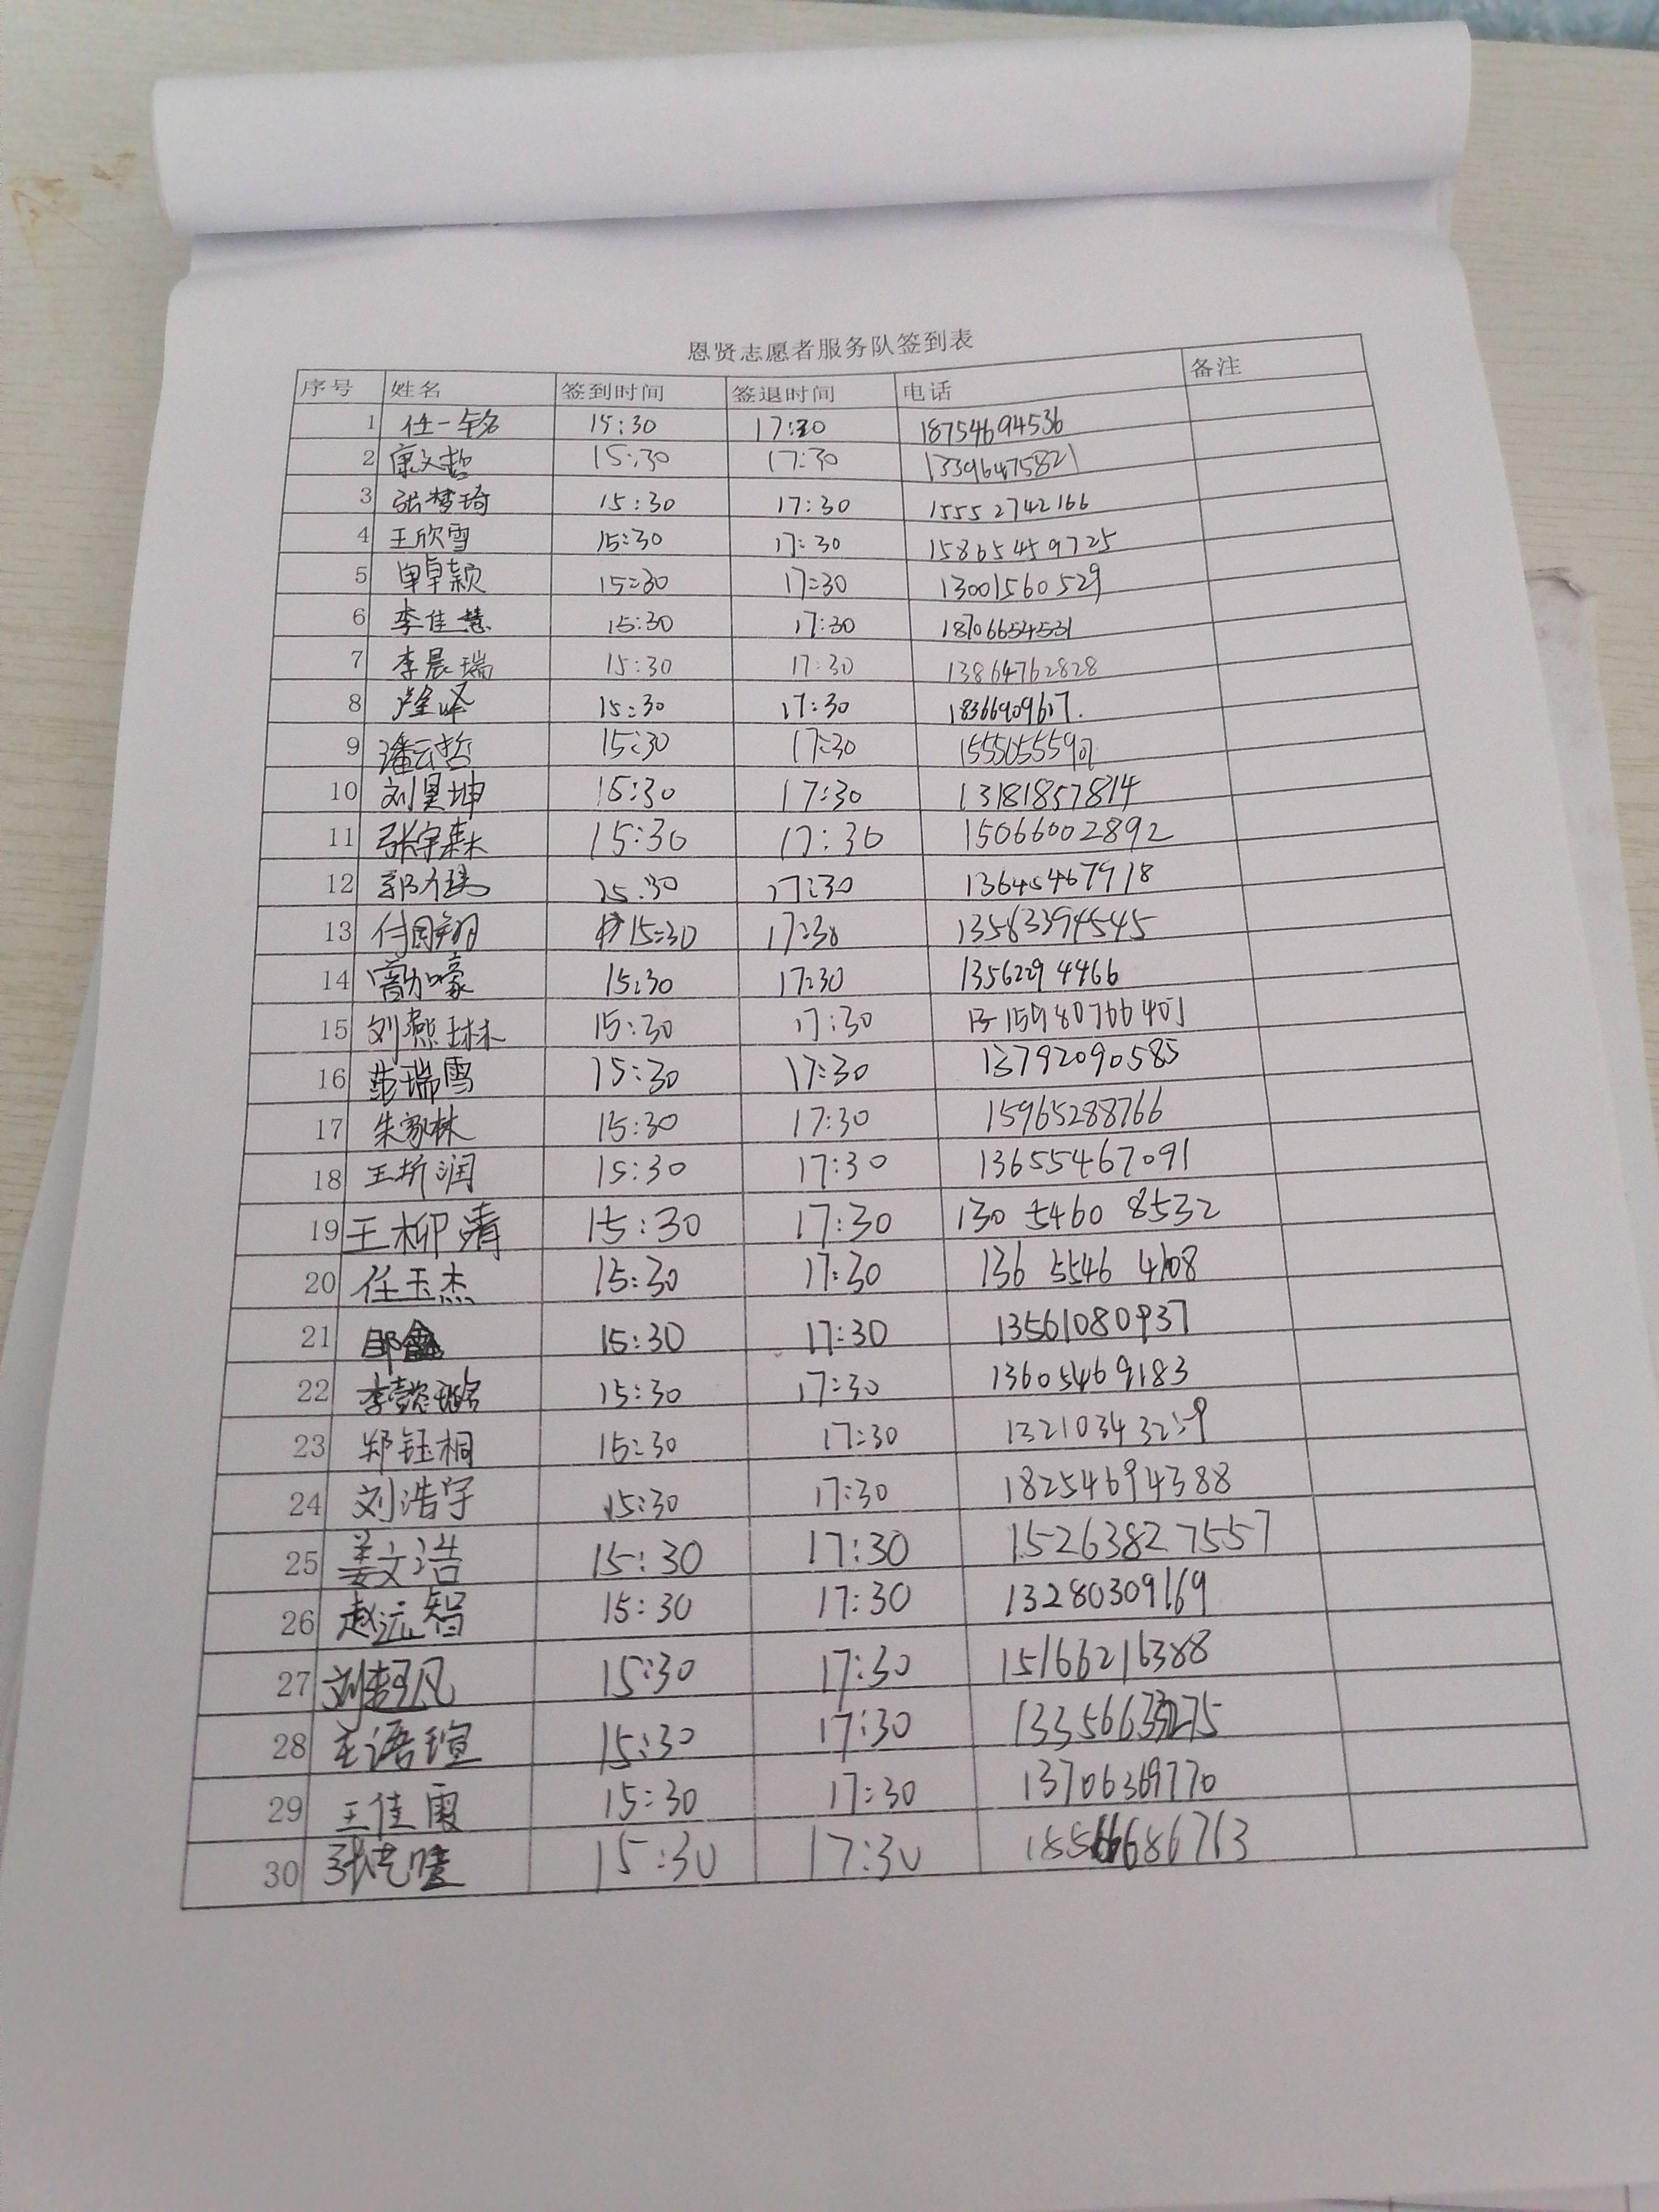 恩贤志愿者服务队签到表
序号 姓名 签到时间 签退时间 电话 备注
1 任一铭 15:30 17:30 18754694536
2 康文哲 15:30 17:30 13396475821
3 张梦琦 15:30 17:30 15552742166
4 王欣雪 15:30 17:30 15865459725
5 单卓颖 15:30 17:30 13001560529
6 李佳慧 15:30 17:30 18706654531
7 李晨瑞 15:30 17:30 13864762828
8 15:30 17:30
9 潘云哲 15:30 17:30
10 刘昊坤 15:30 17:30 13181857814
11 张宇森 15:30 17:30 15066002892
12 15:30 17:30 13645467918
13 付国翔 15:30 17:30 13563394545
14 15:30 17:30 13562294466
15 刘燕琳 15:30 17:30 15980766401
16 范瑞雪 15:30 17:30 13792090585
17 朱家林 15:30 17:30 15965288766
18 王折润 15:30 17:30 13655467091
19 王柳清 15:30 17:30 130 5460 8532
20 任玉杰 15:30 17:30 136 5546 4108
21 15:30 17:30 13561080937
22 李懿璐 15:30 17:30 13605469183
23 郑钰桐 15:30 17:30
24 刘浩宇 15:30 17:30 18254694388
25 姜文浩 15:30 17:30 15263827557
26 赵沄智 15:30 17:30 13280309169
27 15:30 17:30 15166216388
28 王语瑄 15:30 17:30
29 王佳霞 15:30 17:30 13706369770
30 15:30 17:30